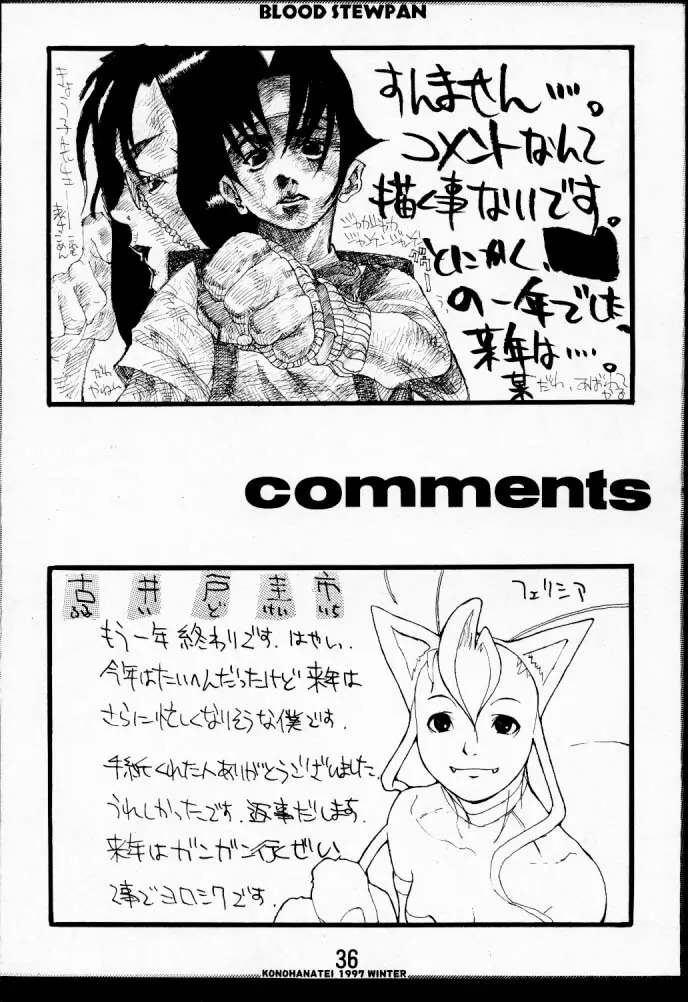 BLOOD STEWPAN
すんません….。
コメントなんて
描く事ないです。
とにかく、
の一年でした、
来年は….。
某
だれ
やねん
comments
古井戸圭市
ふる い ど けい いち
フェリシア
もう一年終わりです.はやい.
今年はたいへんだったけど来年は
さらに忙しくなりそうな僕です.
手紙くれた人ありがとうございました.
うれしかったです.返事だします.
来年はガンガン行くぜい
て事でヨロシクです.
36
KONOHANATEI 1997 WINTER